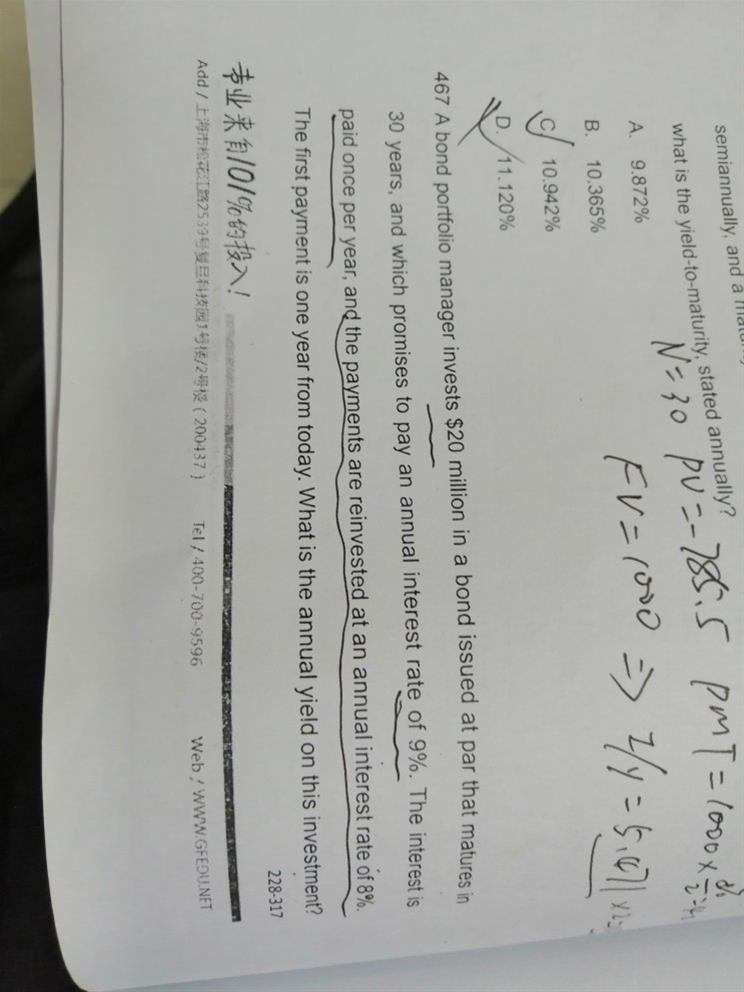 semiannually, and a
what is the yield-to-maturity, stated annually?
N=30 PV=-785.5 PMT=1000×
FV=1000 ⇒ I/Y=5.471
A. 9.872%
B. 10.365%
C. 10.942%
D. 11.120%
467 A bond portfolio manager invests $20 million in a bond issued at par that matures in
30 years, and which promises to pay an annual interest rate of 9%. The interest is
paid once per year, and the payments are reinvested at an annual interest rate of 8%.
The first payment is one year from today. What is the annual yield on this investment?
228-317
专业来自101%的投入!
Add / 上海市松花江路2539号复旦科技园1号楼/2号楼 ( 200437 ) Tel / 400-700-9596 Web / WWW.GFEDU.NET